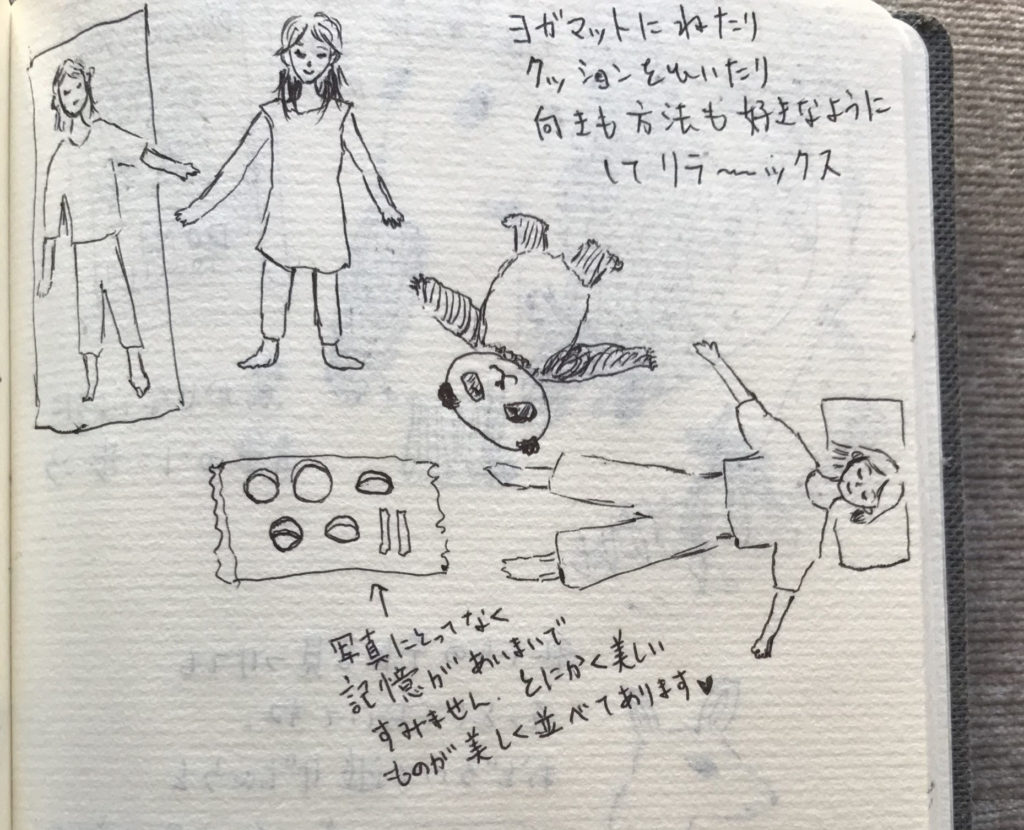 ヨガマットにねたり
クッションをひいたり
向きも方法も好きなように
してリラ〜〜ックス
写真にとってなく
記憶があいまいで
すみません. とにかく美しい
ものが美しく並べてあります♥